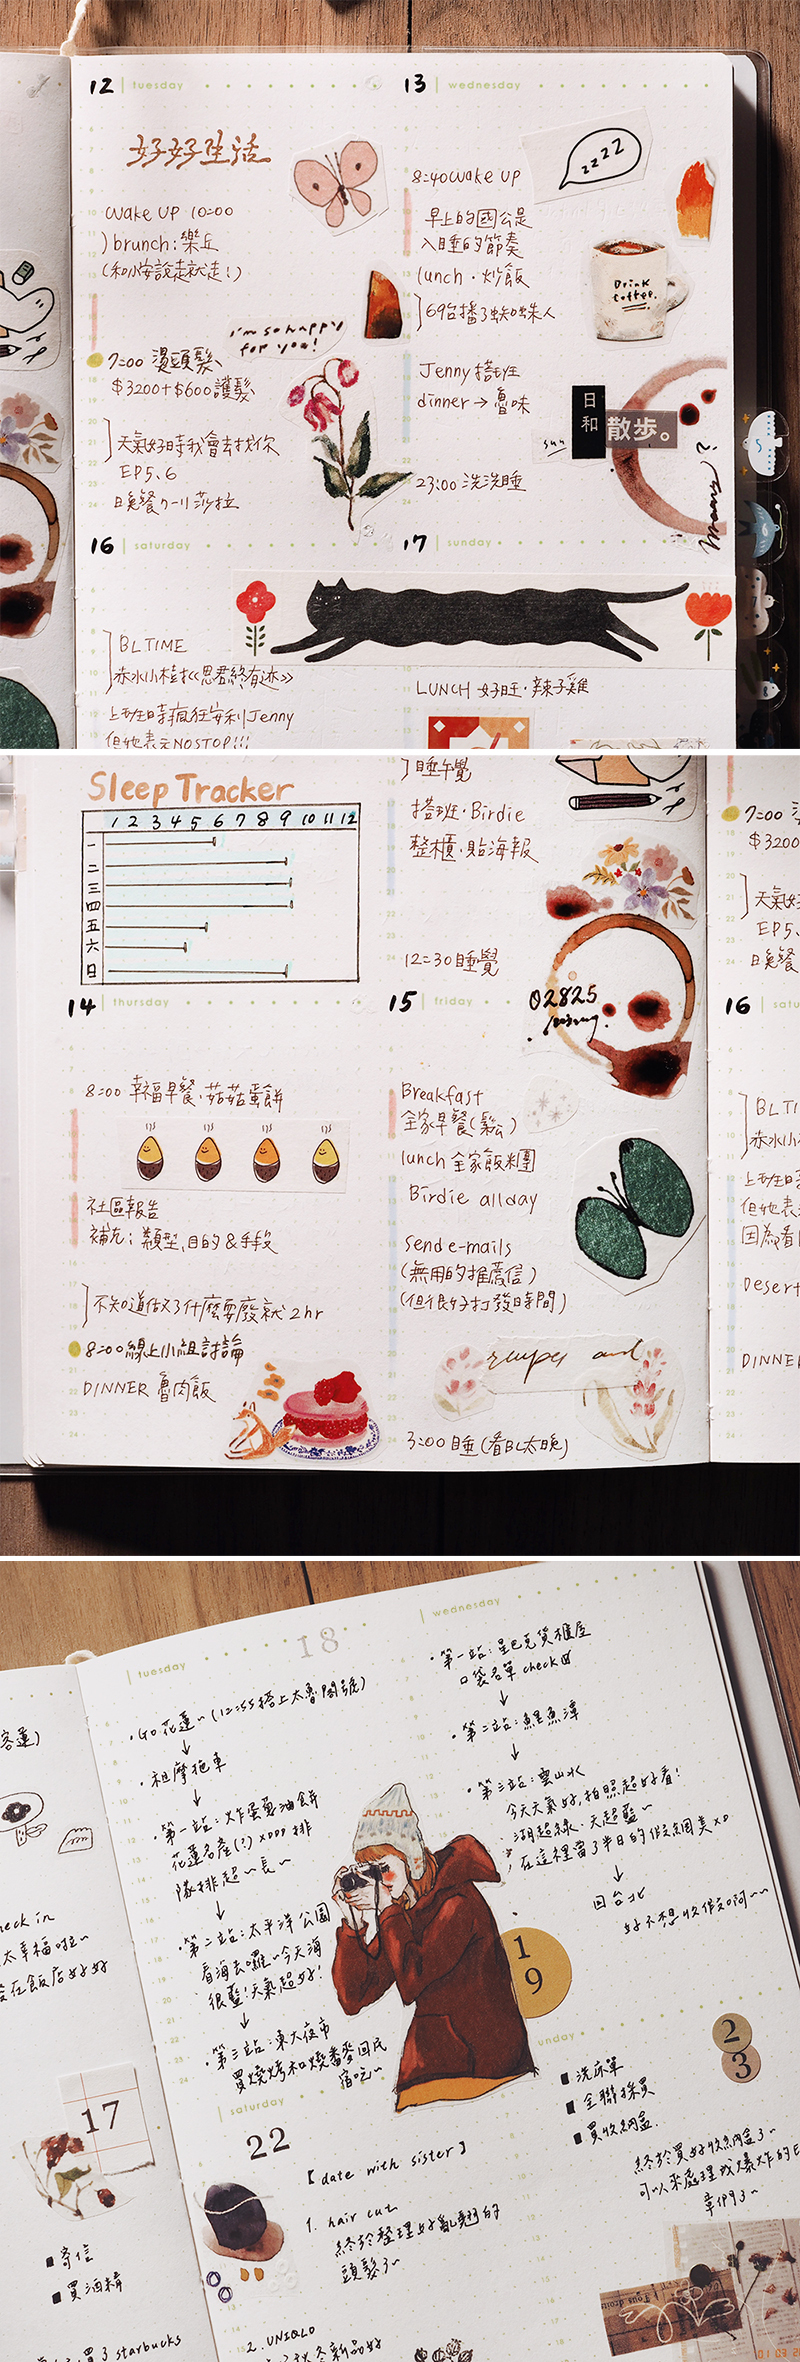 12 tuesday
好好生活
wake up 10:00
brunch:樂丘
(和小安說走就走!)
I'm so happy
for you!
7:00 燙頭髮
$3200+$600護髮
天氣好時我會去找你
EP5、6
晚餐
13 wednesday
zzzz
8:40 wake up
早上的國公是
入睡的節奏
lunch・炒飯
69台播了蜘蛛人
Drink
Coffee.
Jenny 搭班
dinner→魯味
日和
散歩。
sun
23:00 洗洗睡
16 saturday
BL TIME
赤水小桂打《思君終有迹》
上班時瘋狂安利Jenny
但她表示NOSTOP!!!
17 sunday
LUNCH 好旺・辣子雞
Sleep Tracker
1 2 3 4 5 6 7 8 9 10 11 12
一
二
三
四
五
六
日
睡午覺
搭班・Birdie
整櫃・貼海報
12:30 睡覺
02825
7:00
$3200
天氣好
EP5、
晚餐
14 thursday
8:00 幸福早餐・菇菇蛋餅
社區報告
補充:類型、目的&手段
不知道做了什麼耍廢就2hr
8:00 線上小組討論
DINNER 魯肉飯
15 friday
Breakfast
全家早餐(鬆公)
lunch 全家飯糰
Birdie allday
send e-mails
(無用的推薦信)
(但很好打發時間)
recipes and
3:00 睡(看BL太晚)
16
BL TI
赤水小
上班時
但她表
因為看
Desert
DINNE
tuesday 18
・GO 花蓮~(12:55搭上太魯閣號)
↓
・租摩拖車
↓
・第一站:炸蛋蔥油餅
花蓮名產(?)xDDD 排
隊排超~長~
↓
・第二站:太平洋公園
看海去囉~今天海
很藍!天氣超好!
↓
・第三站:東大夜市
買燒烤和燒番麥回民
宿吃~
wednesday
・第一站:星巴克貨櫃屋
口袋名單 check
↓
・第二站:鯉魚潭
↓
・第三站:雲山水
今天天氣好,拍照超好看!
湖超綠、天超藍~
在這裡當了半日的假網美xD
↓
回台北
好不想收假啊~~
19
check in
太幸福啦~
在飯店好好
17
寄信
買酒精
買了starbucks
saturday
22
【date with sister】
1. hair cut
終於整理好亂翹的
頭髮了~
2. UNIQLO
sunday
23
洗床單
全聯採買
買收納盒
終於買好收納盒了~
可以來處理我爆炸的
章們了~
Tous droits